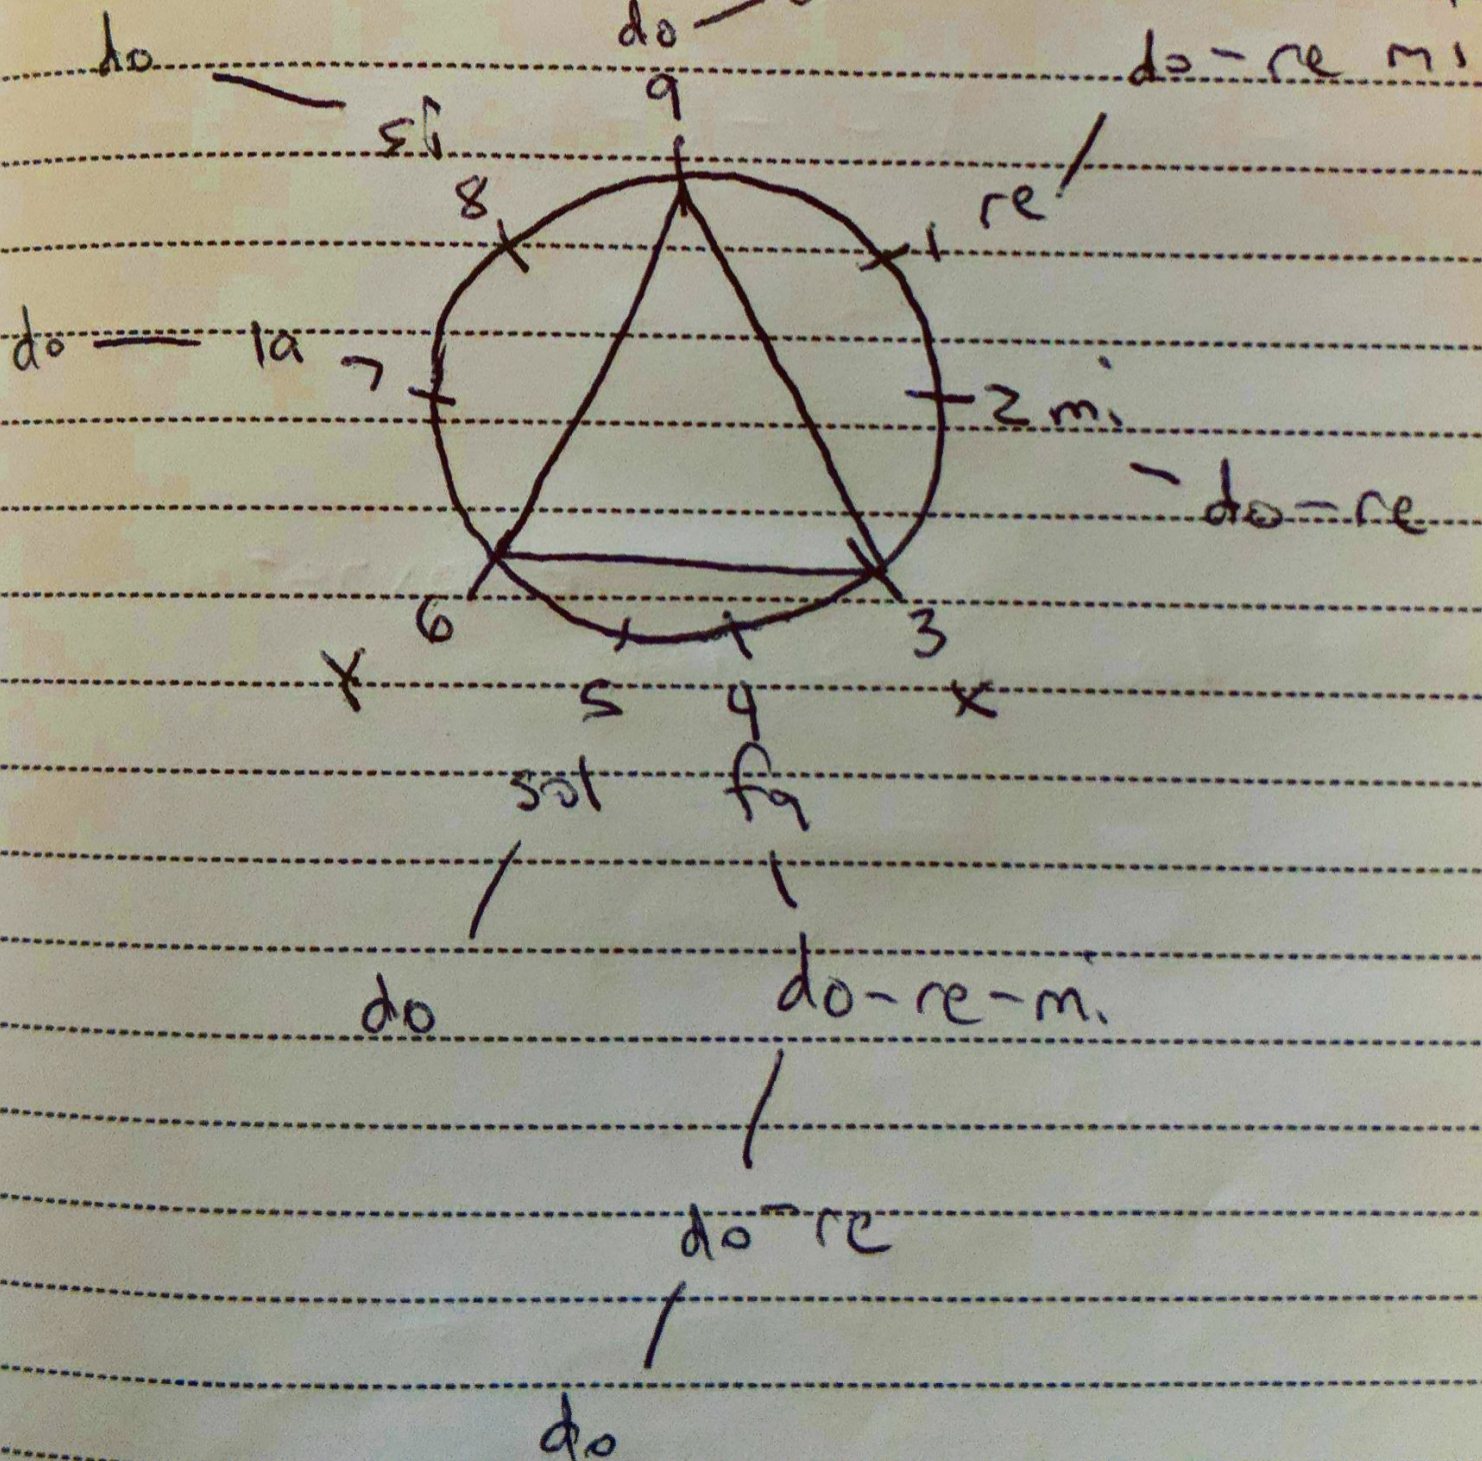 do
do
do - re mi
9
si
8
re
1
do
la
7
2 mi
do - re
6
3
x
5
4
x
sol
fa
do
do - re - mi
do - re
do